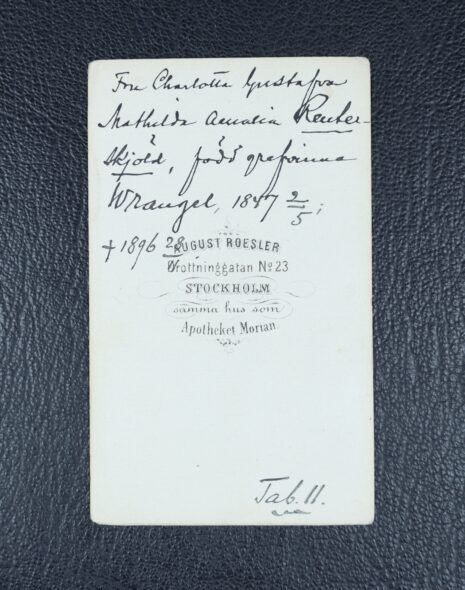 Fru Charlotta Gustafva
Mathilda Amalia Reuter-
skjöld, född grefvinna
Wrangel, 1847 2/5;
† 1896 28/
AUGUST ROESLER
Drottninggatan No 23
STOCKHOLM
samma hus som
Apotheket Morian
Tab. 11.